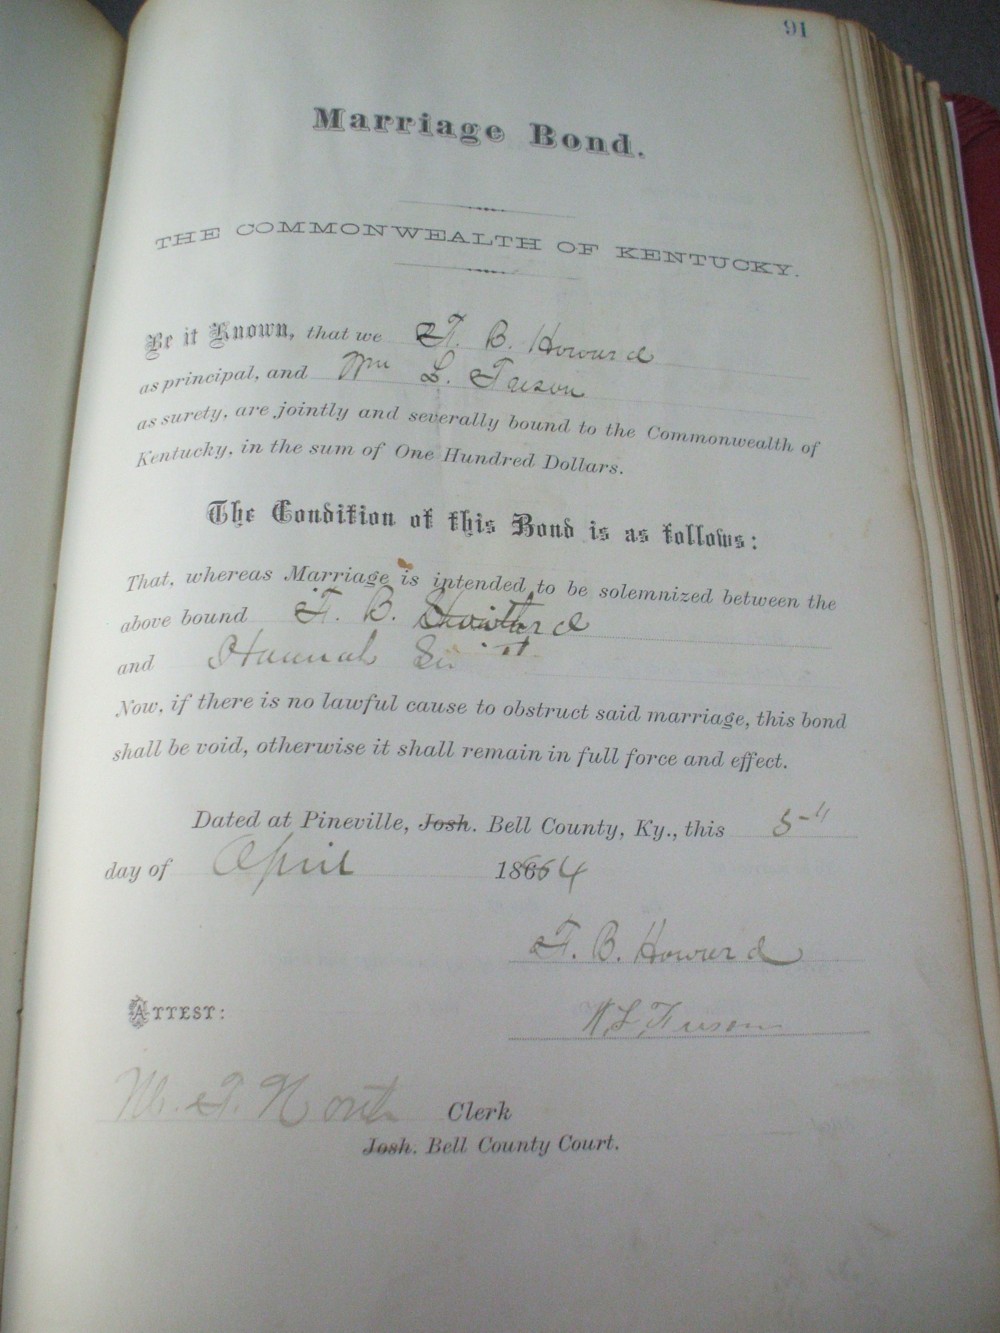 91
Marriage Bond.
THE COMMONWEALTH OF KENTUCKY.
Be it Known, that we F. B. Howard
as principal, and Wm L. Fuson
as surety, are jointly and severally bound to the Commonwealth of
Kentucky, in the sum of One Hundred Dollars.
The Condition of this Bond is as follows:
That, whereas Marriage is intended to be solemnized between the
above bound F. B. Howard
and Hannah
Now, if there is no lawful cause to obstruct said marriage, this bond
shall be void, otherwise it shall remain in full force and effect.
Dated at Pineville, Josh. Bell County, Ky., this 5"
day of April 18
F. B. Howard
W. L. Fuson
ATTEST:
North Clerk
Josh. Bell County Court.